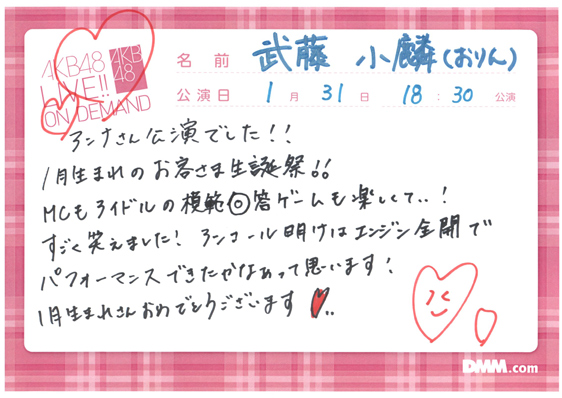 AKB48
LIVE!!
ON DEMAND
AKB
48
名前 武藤 小麟(おりん)
公演日 1月31日 18:30 公演
アンナさん公演でした!!
1月生まれのお客さま生誕祭!!
MCもアイドルの模範回答ゲームも楽しくて..!
すごく笑えました!アンコール明けはエンジン全開で
パフォーマンスできたかなぁって思います!
1月生まれさんおめでとうございます
DMM.com